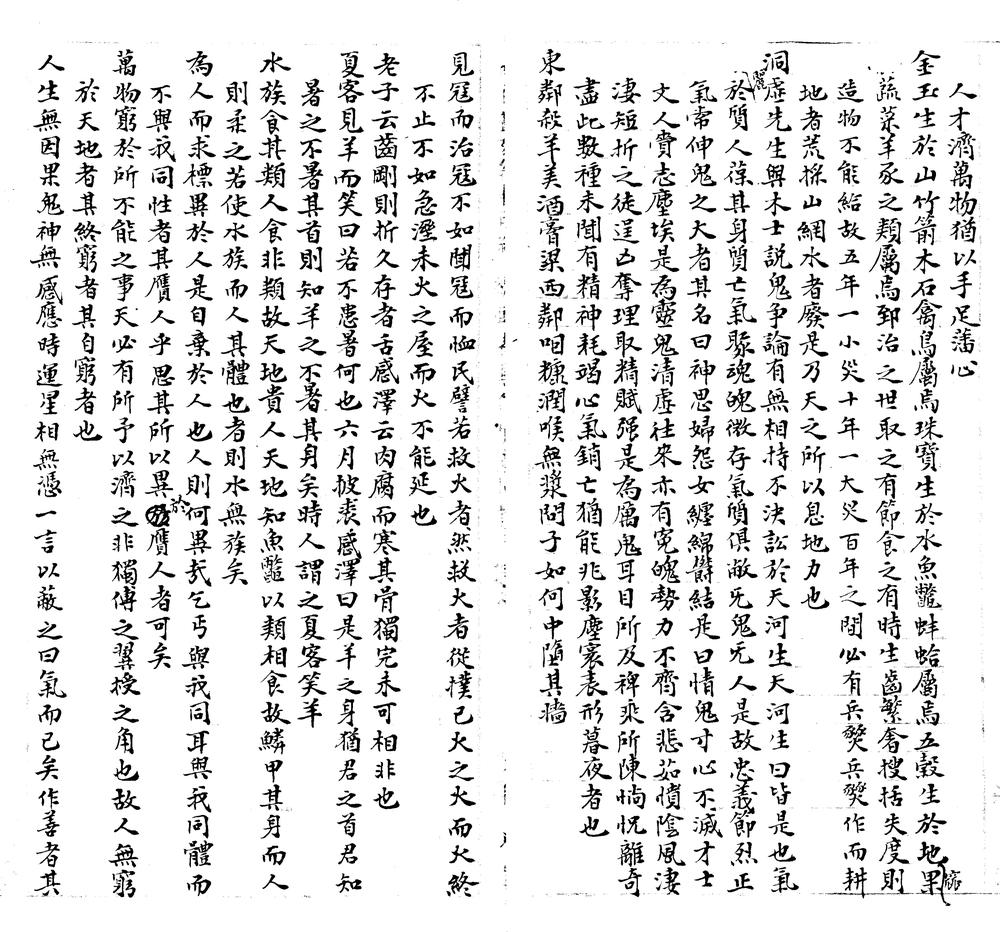 人才濟萬物猶以手足藩心
金玉生於山竹箭木石禽鳥屬焉珠寶生於水魚鼈蚌蛤屬焉五穀生於地果蓏
蔬菜羊豕之類屬焉郅治之世取之有節食之有時生齒繁奢搜括失度則
造物不能給故五年一小災十年一大災百年之間必有兵燹兵燹作而耕
地者荒採山網水者廢是乃天之所以息地力也
洞虛先生與木士說鬼爭論有無相持不決訟於天河生天河生曰皆是也氣
麗於質人葆其身質亡氣豚魂魄微存氣質俱敝旡鬼旡人是故忠義節烈正
氣常伸鬼之大者其名曰神思婦怨女纏綿鬱結是曰情鬼寸心不滅才士
文人賫志塵埃是為靈鬼清虛往來亦有寃魄勢力不齊含悲茹憤陰風淒
淒短折之徒逞凶奪理取精賦强是為厲鬼耳目所及稗乘所陳惝怳離奇
盡此數種未聞有精神耗竭心氣銷亡猶能兆影塵寰表形暮夜者也
東鄰殺羊美酒膏粱西鄰咽糠潤喉無漿問子如何中隔其牆
見寇而治寇不如聞寇而恤民譬若救火者然救火者從撲已火之火而火終
不止不如急溼未火之屋而火不能延也
老子云齒剛則折久存者舌感澤云肉腐而寒其骨獨完未可相非也
夏客見羊而笑曰若不患暑何也六月披裘感澤曰是羊之身猶君之首君知
暑之不暑其首則知羊之不暑其身矣時人謂之夏客笑羊
水族食其類人食非類故天地貴人天地知魚鼈以類相食故鱗甲其身而人
則柔之若使水族而人其體也者則水無族矣
為人而求標異於人是自棄於人也人則何異哉乞丐與我同耳與我同體而
不與我同性者其贋人乎思其所以異於贋人者可矣
萬物窮於所不能之事天必有所予以濟之非獨傅之翼授之角也故人無窮
於天地者其終窮者其自窮者也
人生無因果鬼神無感應時運星相無憑一言以蔽之曰氣而已矣作善者其